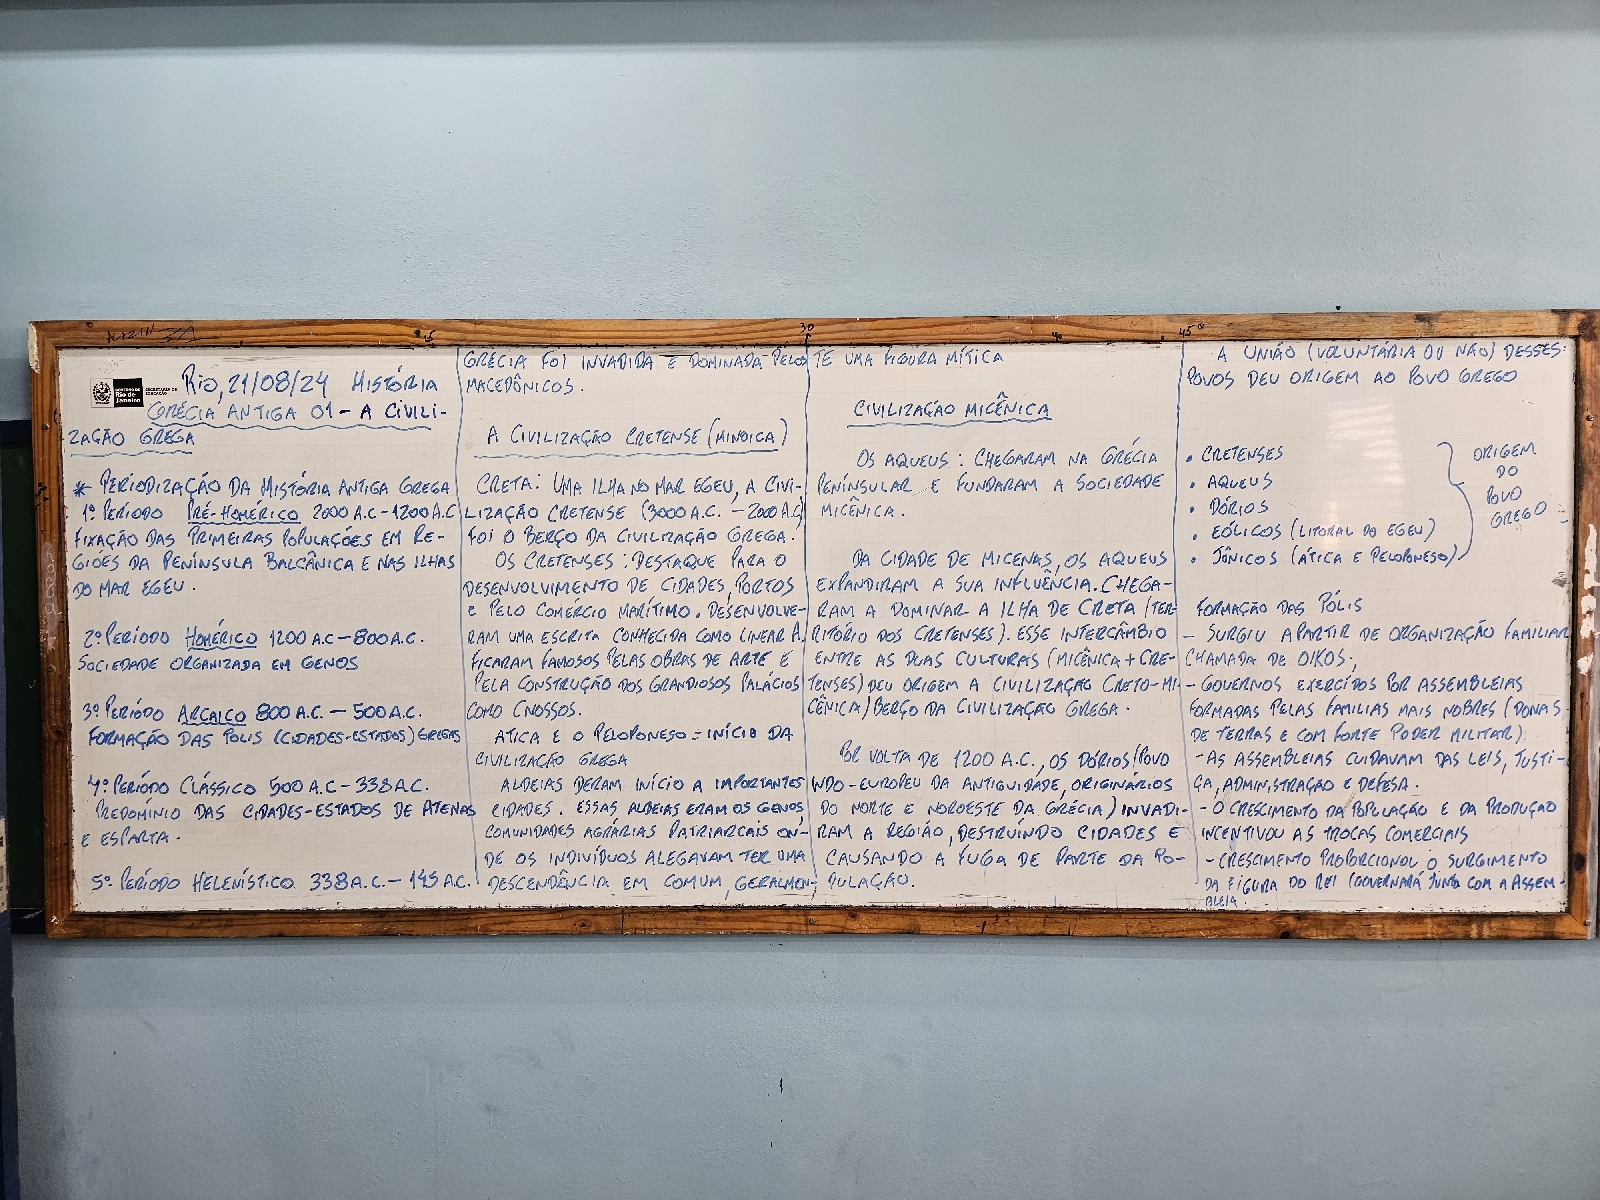 GOVERNO DO
Rio de
Janeiro
SECRETARIA DE
EDUCAÇÃO
Rio, 21/08/24 HISTÓRIA
GRÉCIA ANTIGA 01 - A CIVILI-
ZAÇÃO GREGA
* PERIODIZAÇÃO DA HISTÓRIA ANTIGA GREGA
1º PERÍODO PRÉ-HOMÉRICO 2000 A.C - 1200 A.C
FIXAÇÃO DAS PRIMEIRAS POPULAÇÕES EM RE-
GIÕES DA PENÍNSULA BALCÂNICA E NAS ILHAS
DO MAR EGEU.
2º PERÍODO HOMÉRICO 1200 A.C - 800 A.C.
SOCIEDADE ORGANIZADA EM GENOS
3º PERIÓDO ARCAICO 800 A.C. - 500 A.C.
FORMAÇÃO DAS POLIS (CIDADES-ESTADOS) GREGAS
4º PERÍODO CLÁSSICO 500 A.C - 338 A.C.
PREDOMÍNIO DAS CIDADES-ESTADOS DE ATENAS
E ESPARTA.
5º PERÍODO HELENÍSTICO 338 A.C. - 145 A.C.
GRÉCIA FOI INVADIDA E DOMINADA PELOS
MACEDÔNICOS.
A CIVILIZAÇÃO CRETENSE (MINOICA)
CRETA: UMA ILHA NO MAR EGEU, A CIVI-
LIZAÇÃO CRETENSE (3000 A.C. - 2000 A.C)
FOI O BERÇO DA CIVILIZAÇÃO GREGA.
OS CRETENSES: DESTAQUE PARA O
DESENVOLVIMENTO DE CIDADES, PORTOS
E PELO COMÉRCIO MARÍTIMO. DESENVOLVE-
RAM UMA ESCRITA CONHECIDA COMO LINEAR A.
FICARAM FAMOSOS PELAS OBRAS DE ARTE E
PELA CONSTRUÇÃO DOS GRANDIOSOS PALÁCIOS
COMO CNOSSOS.
ATICA E O PELOPONESO = INÍCIO DA
CIVILIZAÇÃO GREGA
ALDEIAS DERAM INÍCIO A IMPORTANTES
CIDADES. ESSAS ALDEIAS ERAM OS GENOS,
COMUNIDADES AGRÁRIAS PATRIARCAIS ON-
DE OS INDIVÍDUOS ALEGAVAM TER UMA
DESCENDÊNCIA EM COMUM, GERALMEN-
30
TE UMA FIGURA MÍTICA
CIVILIZAÇÃO MICÊNICA
OS AQUEUS: CHEGARAM NA GRÉCIA
PENÍNSULAR E FUNDARAM A SOCIEDADE
MICÊNICA.
DA CIDADE DE MICENAS, OS AQUEUS
EXPANDIRAM A SUA INFLUÊNCIA. CHEGA-
RAM A DOMINAR A ILHA DE CRETA (TER-
RITÓRIO DOS CRETENSES). ESSE INTERCÂMBIO
ENTRE AS DUAS CULTURAS (MICÊNICA + CRE-
TENSES) DEU ORIGEM A CIVILIZAÇÃO CRETO-MI-
CÊNICA) BERÇO DA CIVILIZAÇÃO GREGA.
POR VOLTA DE 1200 A.C., OS DÓRIOS (POVO
INDO-EUROPEU DA ANTIGUIDADE, ORIGINÁRIOS
DO NORTE E NOROESTE DA GRÉCIA) INVADI-
RAM A REGIÃO, DESTRUINDO CIDADES E
CAUSANDO A FUGA DE PARTE DA PO-
PULAÇÃO.
45
A UNIÃO (VOLUNTÁRIA OU NÃO) DESSES
POVOS DEU ORIGEM AO POVO GREGO
• CRETENSES
• AQUEUS
• DÓRIOS
• EÓLICOS (LITORAL DO EGEU)
• JÔNICOS (ÁTICA E PELOPONESO)
ORIGEM
DO
POVO
GREGO
FORMAÇÃO DAS PÓLIS
- SURGIU A PARTIR DE ORGANIZAÇÃO FAMILIAR
CHAMADA DE OIKOS;
- GOVERNOS EXERCÍDOS POR ASSEMBLEIAS
FORMADAS PELAS FAMILIAS MAIS NOBRES (DONAS
DE TERRAS E COM FORTE PODER MILITAR)
- AS ASSEMBLEIAS CUIDAVAM DAS LEIS, JUSTI-
ÇA, ADMINISTRAÇÃO E DEFESA.
- O CRESCIMENTO DA POPULAÇÃO E DA PRODUÇÃO
INCENTIVOU AS TROCAS COMERCIAIS
- CRESCIMENTO PROPORCIONOU O SURGIMENTO
DA FIGURA DO REI (GOVERNARÁ JUNTO COM A ASSEM-
BLEIA.